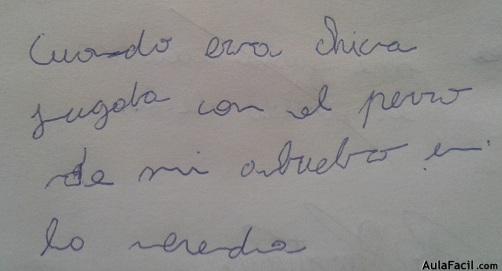 Cuando era chica
jugaba con el perro
de mi abuelo en
la vereda
AulaFacil.com